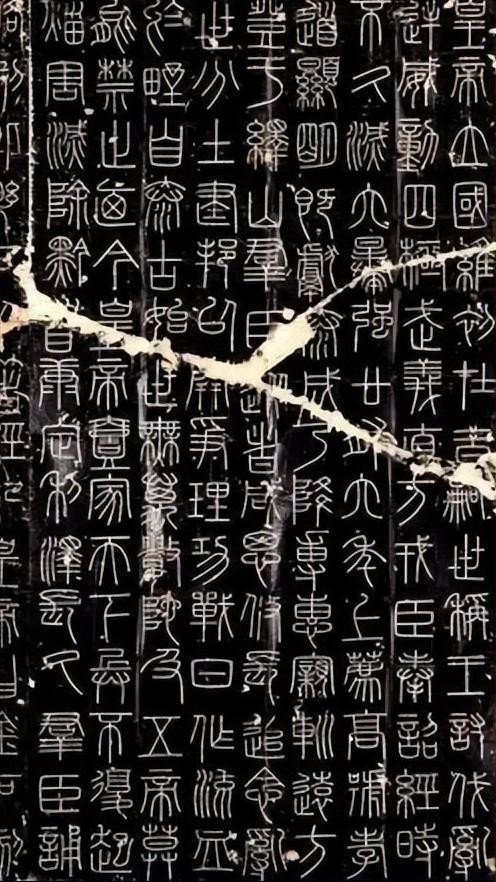 皇帝立國維初在昔嗣世稱王討伐亂
逆威動四極武義直方戎臣奉詔經時
不久滅六暴強廿有六年上薦高號孝
道顯明既獻泰成乃降專惠窺輙遠方
登于繹山群臣從者咸思攸長追念亂
世分土建邦以開爭理功戰日作流血
於野自泰古始世無萬數陀及五帝莫
能禁止迺今皇帝壹家天下兵不復起
災害滅除黔首康定利澤長久群臣誦